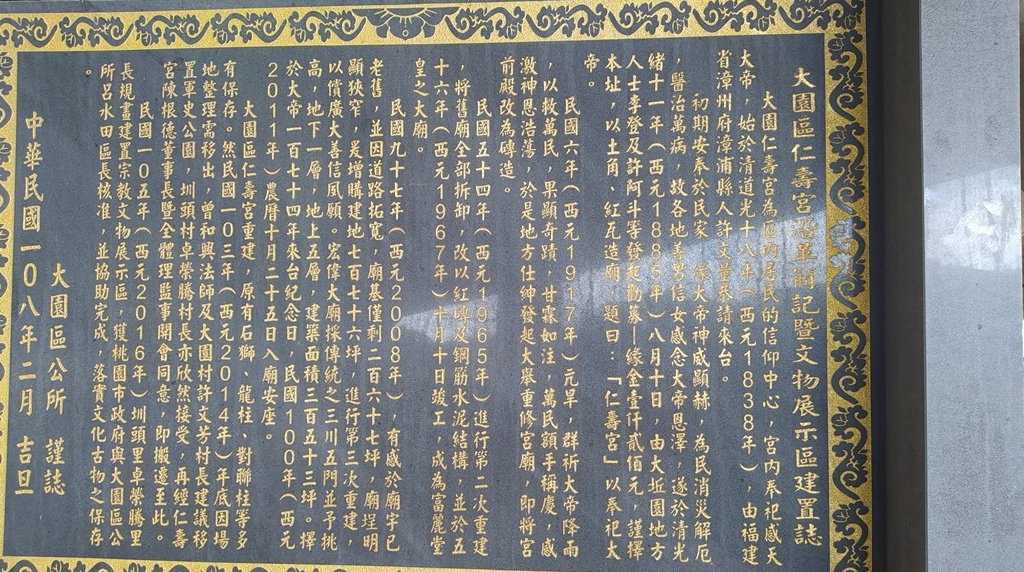 大園區仁壽宮沿革簡記暨文物展示區建置誌
大園仁壽宮為區內居民的信仰中心，宮內奉祀感天
大帝，始於清道光十八年（西元1838年），由福建
省漳州府漳浦縣人許文置恭請來台。
初期安奉於民家，緣大帝神威顯赫，為民消災解厄
，醫治萬病，故各地善男信女感念大帝恩澤，遂於清光
緒十一年（西元1885年）八月十日，由大坵園地方
人士李登及許阿斗等發起勸募—緣金壹仟貳佰元，謹擇
本址，以土角、紅瓦造廟，題曰：「仁壽宮」以奉祀大
帝。
民國六年（西元1917年）元旱，群祈大帝降雨
，以救萬民，果顯奇蹟，甘霖如注，萬民額手稱慶，感
激神恩浩蕩，於是地方仕紳發起大舉重修宮廟，即將宮
前殿改為磚造。
民國五十四年（西元1965年）進行第二次重建
，將舊廟全部拆卸，改以紅磚及鋼筋水泥結構，並於五
十六年（西元1967年）十月十日竣工，成為富麗堂
皇之大廟。
民國九十七年（西元2008年），有感於廟宇已
老舊，並因道路拓寬，廟基僅剩二百六十七坪，廟埕明
顯狹窄，爰增購建地七百七十六坪，進行第三次重建，
以償廣大善信夙願。宏偉大廟採傳統之三川五門並予挑
高，地下一層，地上五層，建築面積三百五十三坪。擇
於大帝一百七十四年來台紀念日，民國100年（西元
2011年）農曆十月二十五日入廟安座。
大園區仁壽宮重建，原有石獅、龍柱、對聯柱等多
有保存。然民國一0三年（西元2014年）年底因場
地整理需移出，曾和興法師及大園村許文芳村長建議移
置軍史公園，圳頭村卓榮騰村長亦欣然接受，再經仁壽
宮陳根德董事長暨全體理監事開會同意，即搬遷至此。
民國一0五年（西元2016年）圳頭里卓榮騰里
長規畫建置宗教文物展示區，獲桃園市政府與大園區公
所呂水田區長核准，並協助完成，落實文化古物之保存
。
大園區公所　謹誌
中華民國一0八年二月　吉旦